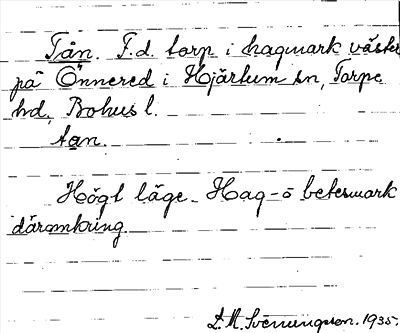 Tån. F.d. torp i hagmark väster
på Önnered i Hjärtum sn, Torpe
hd, Bohus l.
tan.
Högt läge. Hag- o betesmark
däromkring.
L. M. Svenungson. 1935.